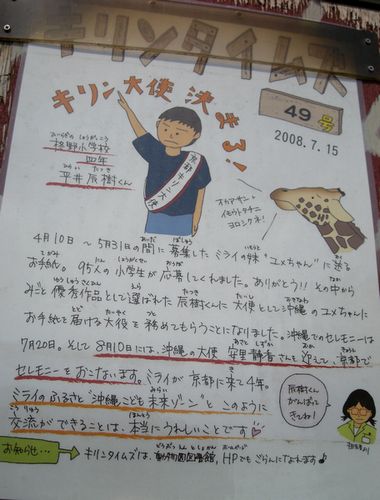 キリンタイムズ
キリン大使決まる!
49号
2008.7.15
小学校
四年
平井辰樹くん
京都キリン大使
オカアサーン
イモウトタチニ
ヨロシクネ!
4月10日〜5月31日の間に募集したミライの妹"ユメちゃん"に送る
お手紙。95人の小学生が応募してくれました。ありがとう!!その中から
みごと優秀作品として選ばれた辰樹くんに大使として沖縄のユメちゃんに
お手紙を届ける大役を務めてもらうことになりました。沖縄でのセレモニーは
7月20日。そして8月10日には、沖縄の大使 安里静香さんを迎えて、京都で
セレモニーをおこないます。ミライが京都に来て4年。
ミライのふるさと"沖縄こども未来ゾーン"とこのように
交流ができることは、本当にうれしいことです♡
辰樹くん
がんばって
きてね!
お知らせ…
キリンタイムズは、動物園図書館,HPでもごらんになれます♪